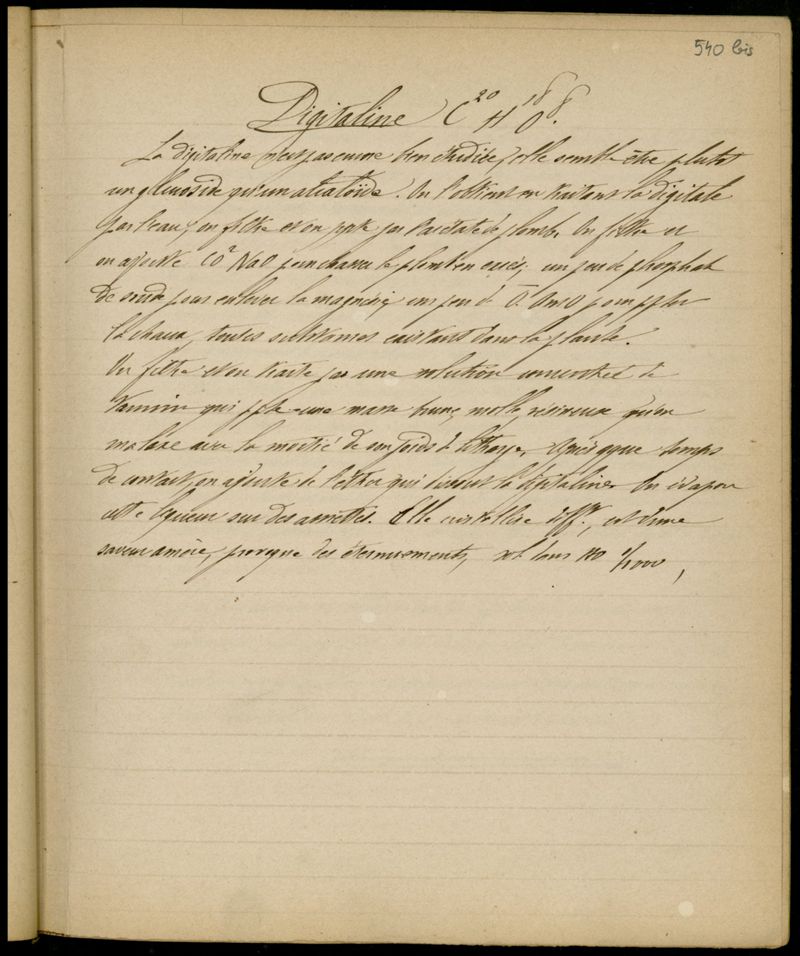 540 bis
Digitaline C20 H18 O8.
La digitaline n'est pas encore bien étudiée, elle semble être plutôt
un glucoside qu'un alcaloïde. On l'obtient en traitant la digitale
par l'eau, on filtre et on ppte par l'acétate de plomb. On filtre et
on ajoute CO2 NaO pour chasser le plomb en excès, un peu de phosphate
de soude pour enlever la magnésie, un peu d' O. AmO pour ppter
la chaux, toutes substances existant dans la plante.
On filtre et on traite par une solution concentrée de
tannin qui ppte une masse brune, molle, résineuse qu'on
malaxe avec la moitié de son poids de litharge. Après qque temps
de contact, on ajoute de l'éther qui dissout la digitaline. On évapore
cette liqueur sur des assiettes. Elle cristallise diff., est d'une
saveur amère, provoque des éternuements, sol. dans HO 1/1000,